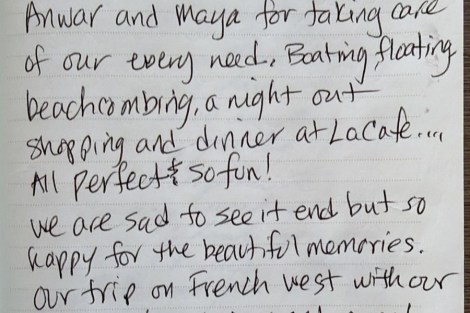 Anwar and Maya for taking care
of our every need. Boating, floating,
beachcombing, a night out
shopping and dinner at LaCafe....
All perfect & so fun!
we are sad to see it end but so
happy for the beautiful memories.
Our trip on French west with our